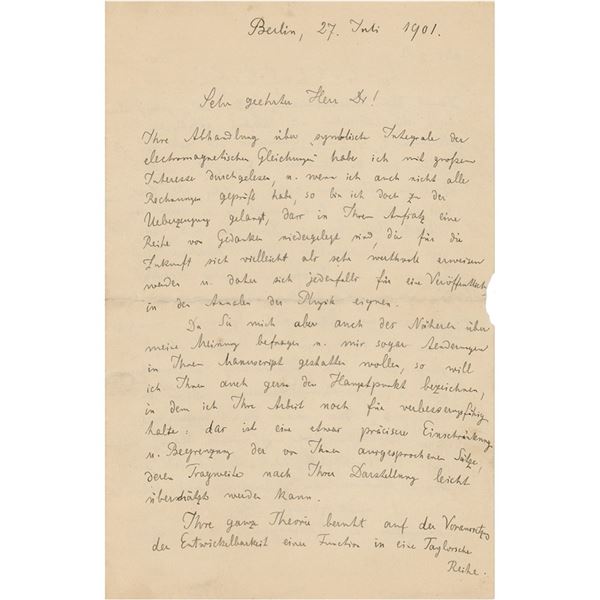 Berlin, 27. Juli 1901.
Sehr geehrter Herr Dr!
Ihre Abhandlung über „symbolische Integrale der
electromagnetischen Gleichungen" habe ich mit großem
Interesse durchgelesen, u. wenn ich auch nicht alle
Rechnungen geprüft habe, so bin ich doch zu der
Ueberzeugung gelangt, dass in Ihrem Aufsatz eine
Reihe von Gedanken niedergelegt sind, die für die
Zukunft sich vielleicht als sehr werthvoll erweisen
werden u. daher sich jedenfalls für eine Veröffentlich
in den Annalen der Physik eignen.
Da Sie mich aber auch des Näheren über
meine Meinung befragen u. mir sogar Aenderungen
in Ihrem Manuscript gestatten wollen, so will
ich Ihnen auch gern den Hauptpunkt bezeichnen,
in dem ich Ihre Arbeit noch für verbesserungsfähig
halte: das ist eine etwas präcisere Einschränkung
u. Begrenzung der von Ihnen ausgesprochenen Sätze,
deren Tragweite nach Ihrer Darstellung leicht
überschätzt werden kann.
Ihre ganze Theorie beruht auf der Voraussetz
der Entwickelbarkeit einer Function in eine Taylorsche
Reihe.